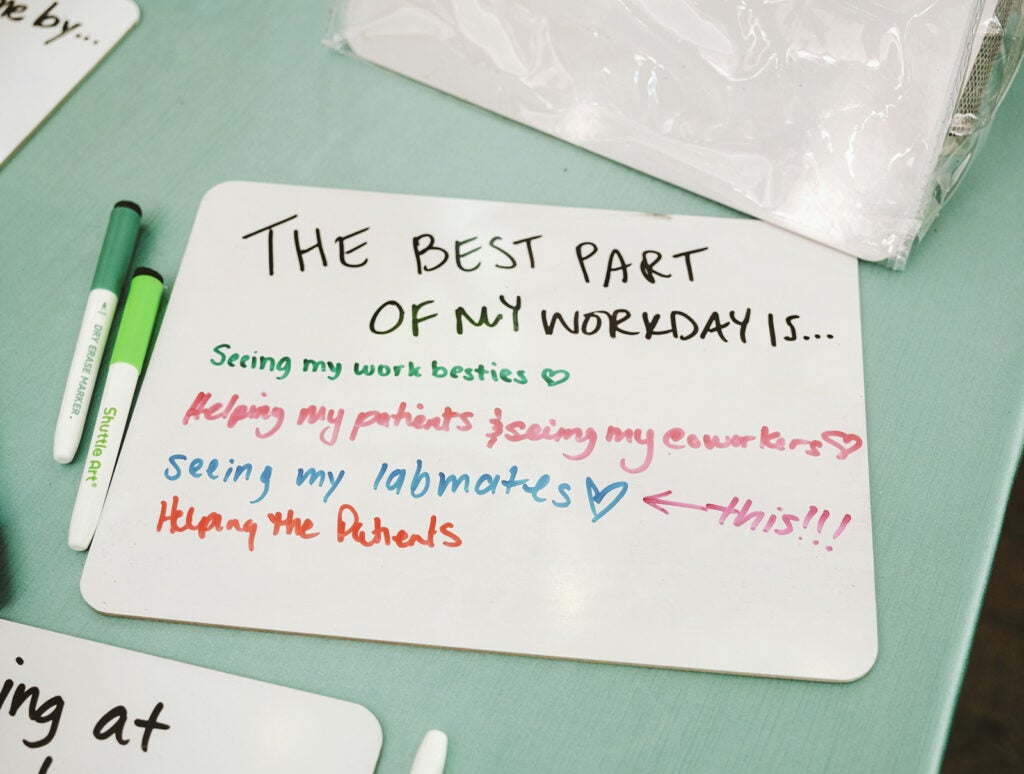 me by...
THE BEST PART
OF MY WORKDAY IS...
Seeing my work besties ♡
Helping my patients & seimg my coworkers ♡
seeing my labmates ♡ ← this!!!
Helping the Patients
DRY ERASE MARKER.
Shuttle Art®
ing at